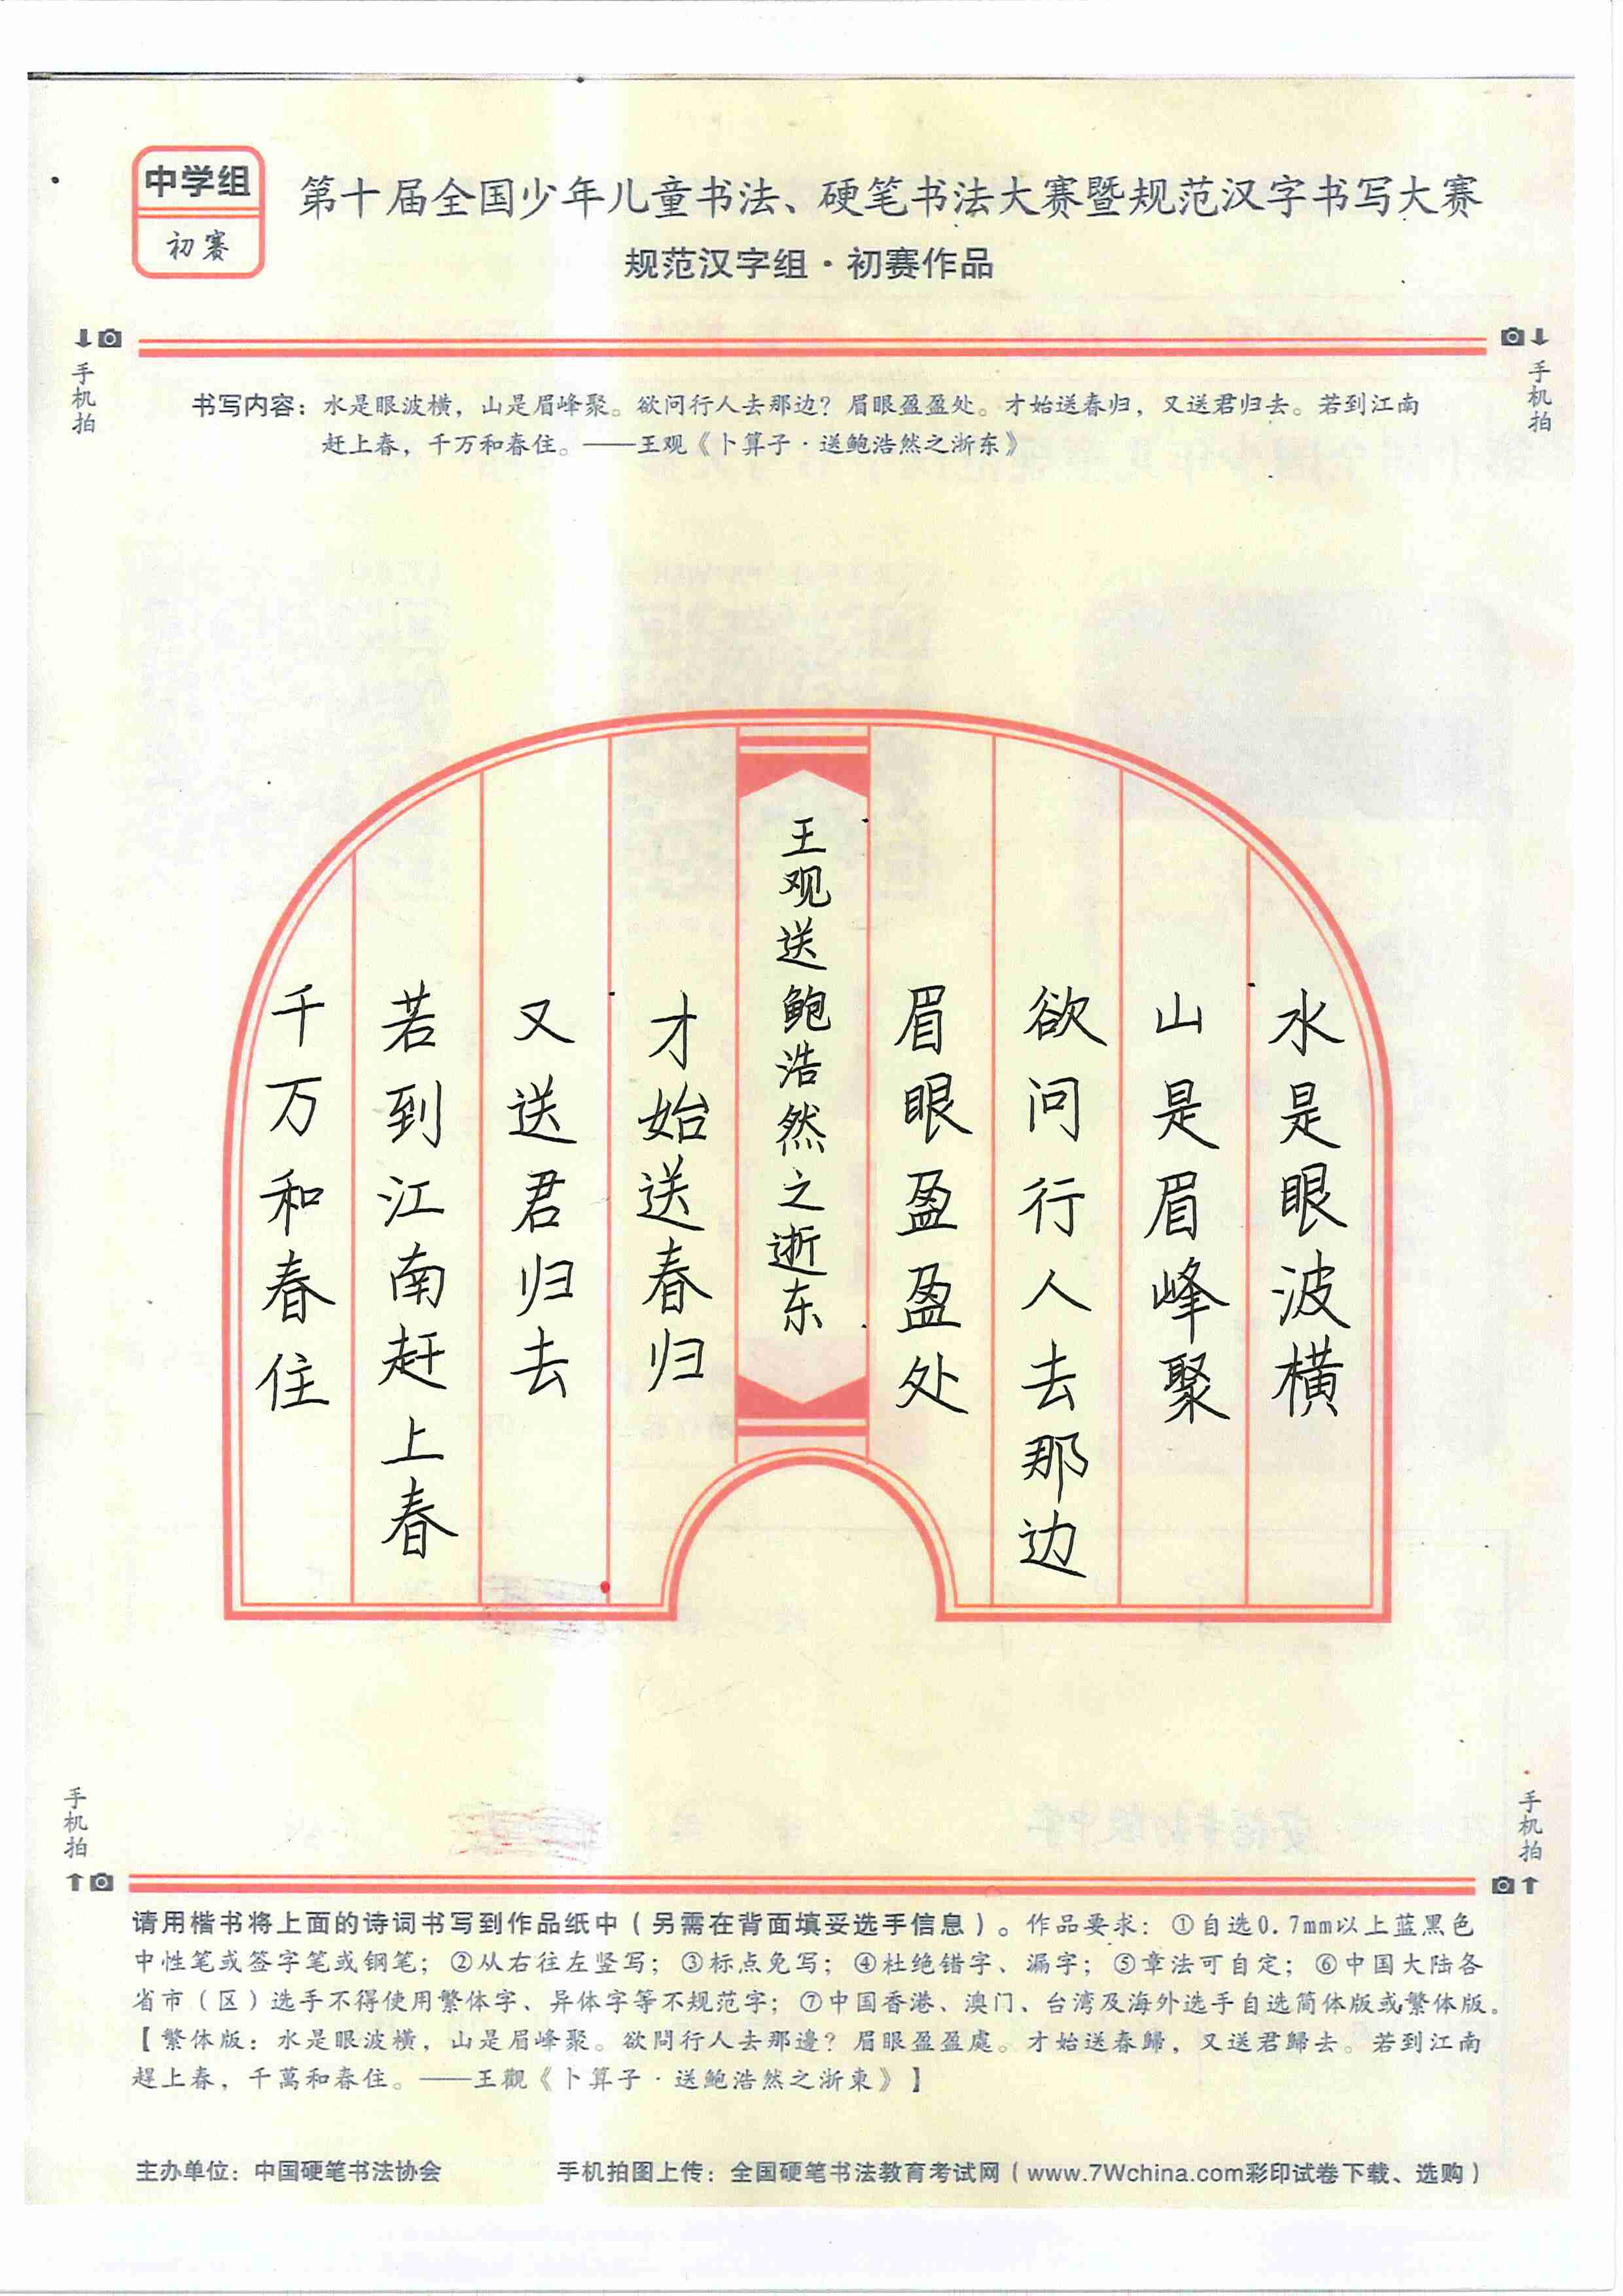 中学组
初赛
第十届全国少年儿童书法、硬笔书法大赛暨规范汉字书写大赛
规范汉字组·初赛作品
手机拍
手机拍
书写内容：水是眼波横，山是眉峰聚。欲问行人去那边？眉眼盈盈处。才始送春归，又送君归去。若到江南
赶上春，千万和春住。——王观《卜算子·送鲍浩然之浙东》
水是眼波横
山是眉峰聚
欲问行人去那边
眉眼盈盈处
王观送鲍浩然之逝东
才始送春归
又送君归去
若到江南赶上春
千万和春住
手机拍
手机拍
请用楷书将上面的诗词书写到作品纸中（另需在背面填妥选手信息）。作品要求：①自选0.7mm以上蓝黑色
中性笔或签字笔或钢笔；②从右往左竖写；③标点免写；④杜绝错字、漏字；⑤章法可自定；⑥中国大陆各
省市（区）选手不得使用繁体字、异体字等不规范字；⑦中国香港、澳门、台湾及海外选手自选简体版或繁体版。
【繁体版：水是眼波横，山是眉峰聚。欲問行人去那邊？眉眼盈盈處。才始送春歸，又送君歸去。若到江南
趕上春，千萬和春住。——王觀《卜算子·送鲍浩然之浙東》】
主办单位：中国硬笔书法协会
手机拍图上传：全国硬笔书法教育考试网（www.7Wchina.com彩印试卷下载、选购）